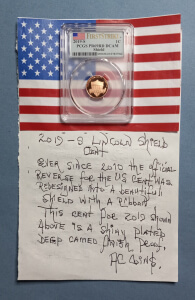 FIRST STRIKE
2019-S 1C
PCGS PR69RD DCAM
Shield
2019-S LINCOLN SHIELD
CENT
EVER SINCE 2010 THE OFFICIAL
REVERSE FOR THE US CENT WAS
REDESIGNED INTO A BEAUTIFUL
SHIELD WITH A RIBBON
THIS CENT FOR 2019 SHOWN
ABOVE IS A SHINY PLATED
DEEP CAMEO PROOF
AC COINS.